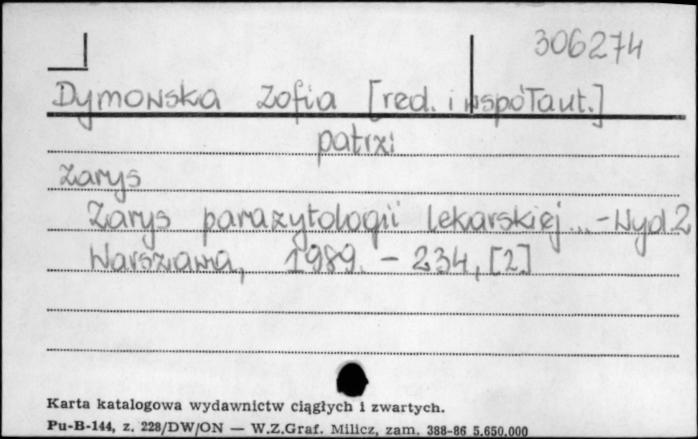 306274
Dymowska Zofia [red. i współaut.]
patrz:
Zarys
Zarys parazytologii lekarskiej ... - Wyd. 2
Warszawa, 1989. - 234, [2]
Karta katalogowa wydawnictw ciągłych i zwartych.
Pu-B-144, z. 228/DW/ON — W.Z.Graf. Milicz, zam. 388-86 5.650.000